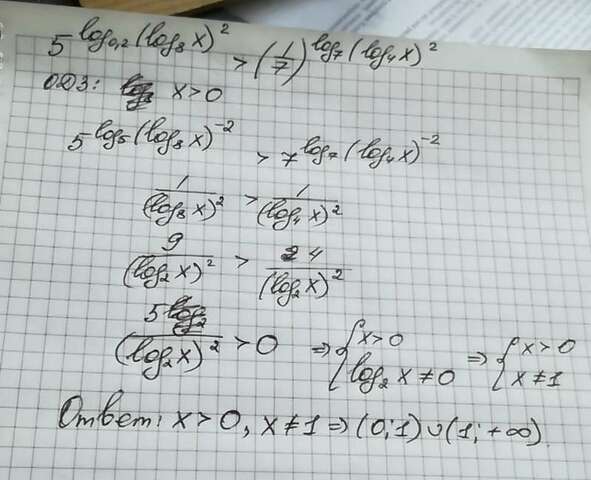 5^{log_{0,2}(log_8 x)^2} > (1/7)^{log_7(log_4 x)^2}
ОДЗ: x>0
5^{log_5(log_8 x)^{-2}} > 7^{log_7(log_4 x)^{-2}}
1/(log_8 x)^2 > 1/(log_4 x)^2
9/(log_2 x)^2 > 4/(log_2 x)^2
5/(log_2 x)^2 > 0 ⇒ { x>0 log_2 x ≠ 0 ⇒ { x>0 x≠1
Ответ: x>0, x≠1 ⇒ (0;1)∪(1;+∞)